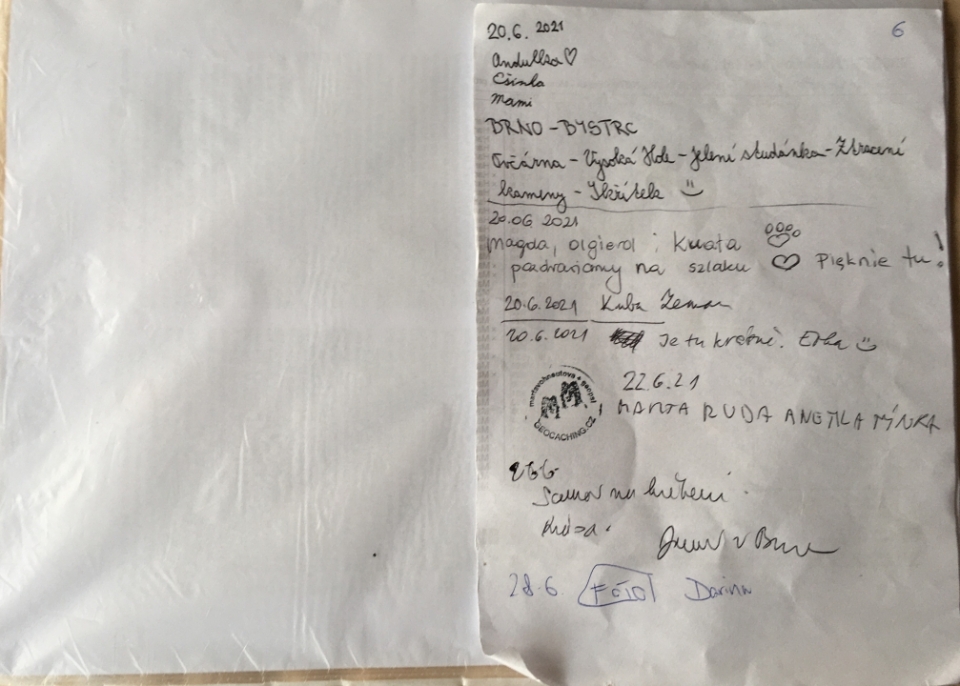 6
20.6. 2021
Andulka♡
Mami
BRNO-BYSTRC
Ovčárna - Vysoká Hole - Jelení studánka - Ztracené
kameny - Skřítek
20.06 2021
Magda, Olgierd i Kwata
pozdrawiamy na szlaku ♡ Pięknie tu!
20.6.2021 Kuba Zeman
20.6.2021 Je tu krásně.
22.6.21
GEOCACHING.CZ
MARTA RUDA
na
v
28.6 FOTO Darina